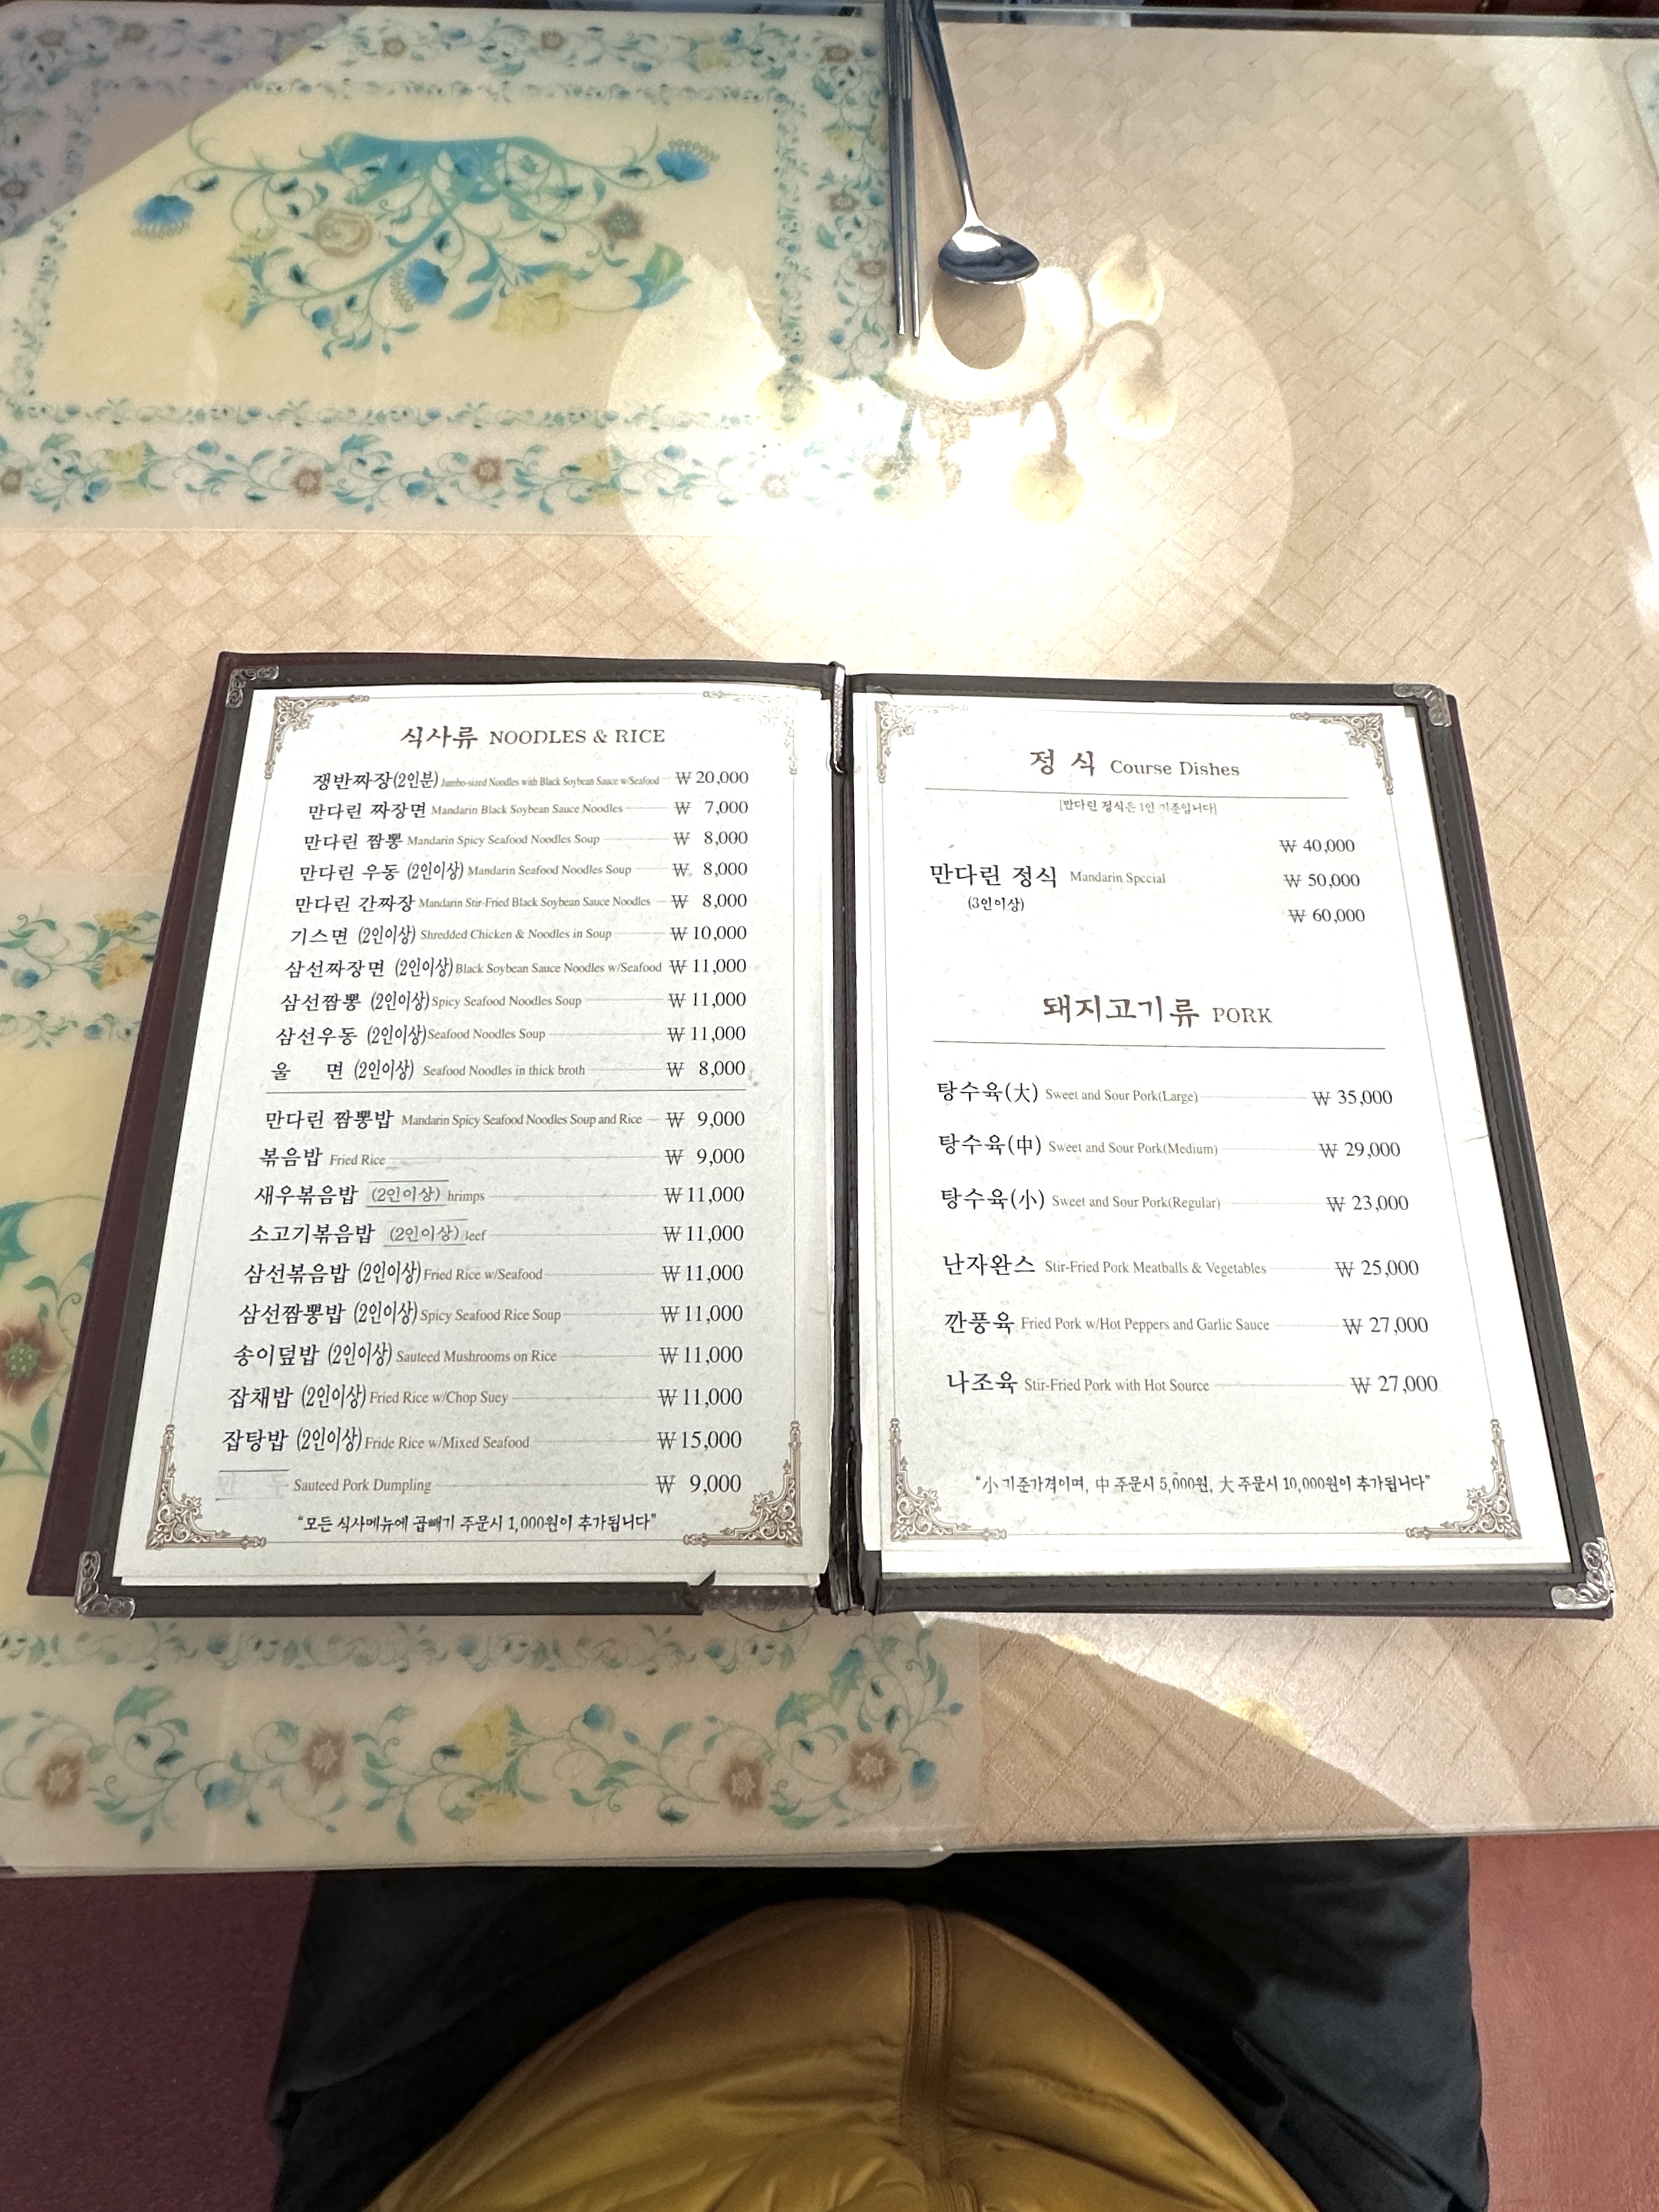 식사류 NOODLES & RICE
쟁반짜장(2인분) Jumbo-sized Noodles with Black Soybean Sauce w/Seafood ₩ 20,000
만다린 짜장면 Mandarin Black Soybean Sauce Noodles ₩ 7,000
만다린 짬뽕 Mandarin Spicy Seafood Noodles Soup ₩ 8,000
만다린 우동 (2인이상) Mandarin Seafood Noodles Soup ₩ 8,000
만다린 간짜장 Mandarin Stir-Fried Black Soybean Sauce Noodles ₩ 8,000
기스면 (2인이상) Shredded Chicken & Noodles in Soup ₩ 10,000
삼선짜장면 (2인이상) Black Soybean Sauce Noodles w/Seafood ₩ 11,000
삼선짬뽕 (2인이상) Spicy Seafood Noodles Soup ₩ 11,000
삼선우동 (2인이상) Seafood Noodles Soup ₩ 11,000
울 면 (2인이상) Seafood Noodles in thick broth ₩ 8,000
만다린 짬뽕밥 Mandarin Spicy Seafood Noodles Soup and Rice ₩ 9,000
볶음밥 Fried Rice ₩ 9,000
새우볶음밥 (2인이상) hrimps ₩ 11,000
소고기볶음밥 (2인이상) eef ₩ 11,000
삼선볶음밥 (2인이상) Fried Rice w/Seafood ₩ 11,000
삼선짬뽕밥 (2인이상) Spicy Seafood Rice Soup ₩ 11,000
송이덮밥 (2인이상) Sauteed Mushrooms on Rice ₩ 11,000
잡채밥 (2인이상) Fried Rice w/Chop Suey ₩ 11,000
잡탕밥 (2인이상) Fride Rice w/Mixed Seafood ₩ 15,000
만 두 Sauteed Pork Dumpling ₩ 9,000
"모든 식사메뉴에 곱빼기 주문시 1,000원이 추가됩니다"
정 식 Course Dishes
[만다린 정식은 1인 기준입니다]
₩ 40,000
만다린 정식 Mandarin Special ₩ 50,000
(3인이상)
₩ 60,000
돼지고기류 PORK
탕수육(大) Sweet and Sour Pork(Large) ₩ 35,000
탕수육(中) Sweet and Sour Pork(Medium) ₩ 29,000
탕수육(小) Sweet and Sour Pork(Regular) ₩ 23,000
난자완스 Stir-Fried Pork Meatballs & Vegetables ₩ 25,000
깐풍육 Fried Pork w/Hot Peppers and Garlic Sauce ₩ 27,000
나조육 Stir-Fried Pork with Hot Source ₩ 27,000
"小 기준가격이며, 中 주문시 5,000원, 大 주문시 10,000원이 추가됩니다"